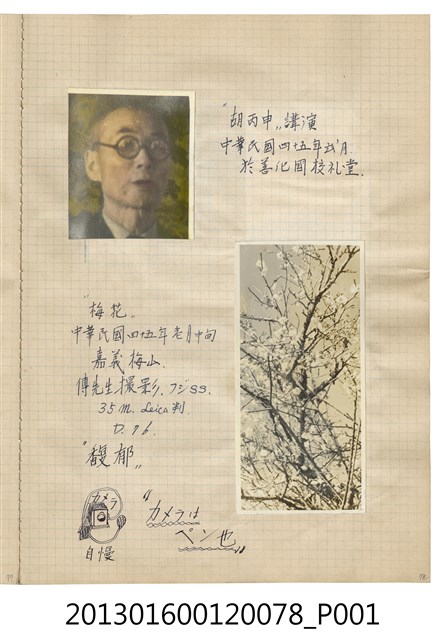 "胡丙申,, 講演
中華民國四十五年弍月
於善化國校礼堂.
"梅花,,
中華民國四十五年壱月中旬
嘉義梅山.
傅先生撮影. フジSS.
35 m. Leica判
"馥郁,,
カメラ
自慢
"カメラは
ペン也,,
201301600120078_P001